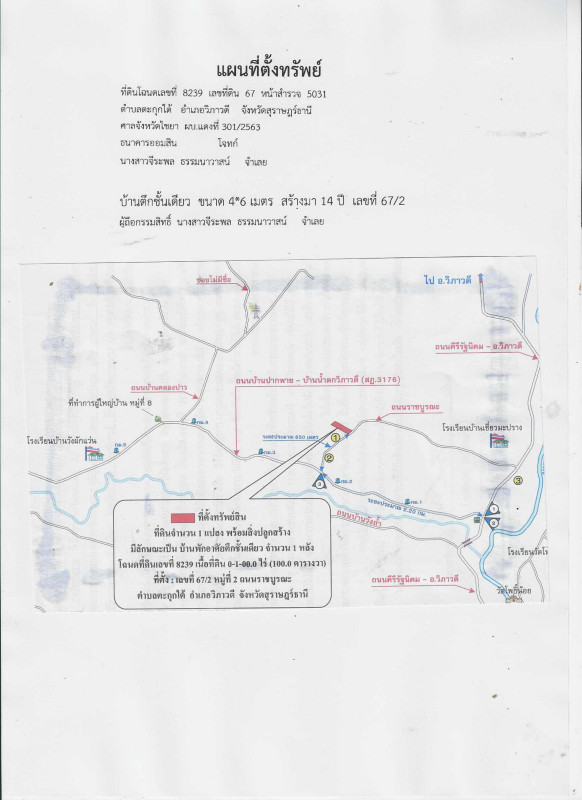 แผนที่ตั้งทรัพย์
ที่ดินโฉนดเลขที่ 8239 เลขที่ดิน 67 หน้าสำรวจ 5031
ตำบลตะกุกใต้ อำเภอวิภาวดี จังหวัดสุราษฎร์ธานี
ศาลจังหวัดไชยา ผบ.แดงที่ 301/2563
ธนาคารออมสิน โจทก์
นางสาวจีระพล ธรรมนาวาสน์ จำเลย
บ้านตึกชั้นเดียว ขนาด 4*6 เมตร สร้างมา 14 ปี เลขที่ 67/2
ผู้ถือกรรมสิทธิ์ นางสาวจีระพล ธรรมนาวาสน์ จำเลย
ซอยไม่มีชื่อ
ไป อ.วิภาวดี
ถนนคีรีรัฐนิคม - อ.วิภาวดี
ถนนบ้านคลองปาว
ถนนบ้านปากพาย - บ้านน้ำตกวิภาวดี (สฎ.3176)
ที่ทำการผู้ใหญ่บ้าน หมู่ที่ 8
ถนนราชบูรณะ
กม.4
โรงเรียนบ้านเชี่ยวมะปราง
โรงเรียนบ้านวังผักแว่น
กม.5
ระยะประมาณ 650 เมตร
1
กม.3
2
3
กม.2
3
ระยะประมาณ 2.55 กม.
กม.1
1
2
ถนนบ้านวังถ้ำ
ที่ตั้งทรัพย์สิน
ที่ดินจำนวน 1 แปลง พร้อมสิ่งปลูกสร้าง
มีลักษณะเป็น บ้านพักอาศัยตึกชั้นเดียว จำนวน 1 หลัง
โฉนดที่ดินเลขที่ 8239 เนื้อที่ดิน 0-1-00.0 ไร่ (100.0 ตารางวา)
ที่ตั้ง : เลขที่ 67/2 หมู่ที่ 2 ถนนราชบูรณะ
ตำบลตะกุกใต้ อำเภอวิภาวดี จังหวัดสุราษฎร์ธานี
ถนนคีรีรัฐนิคม - อ.วิภาวดี
วัดโพธิ์น้อย